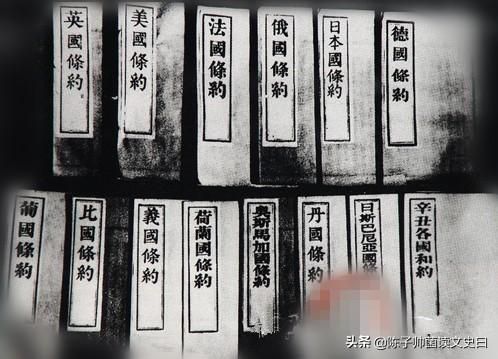 英國條約
美國條約
法國條約
俄國條約
日本國條約
德國條約
葡國條約
比國條約
義國條約
荷蘭國條約
奧斯馬加國條約
丹國條約
日斯巴尼亞國條約
辛丑各國和約
头条 @陈子帅国读文史曰